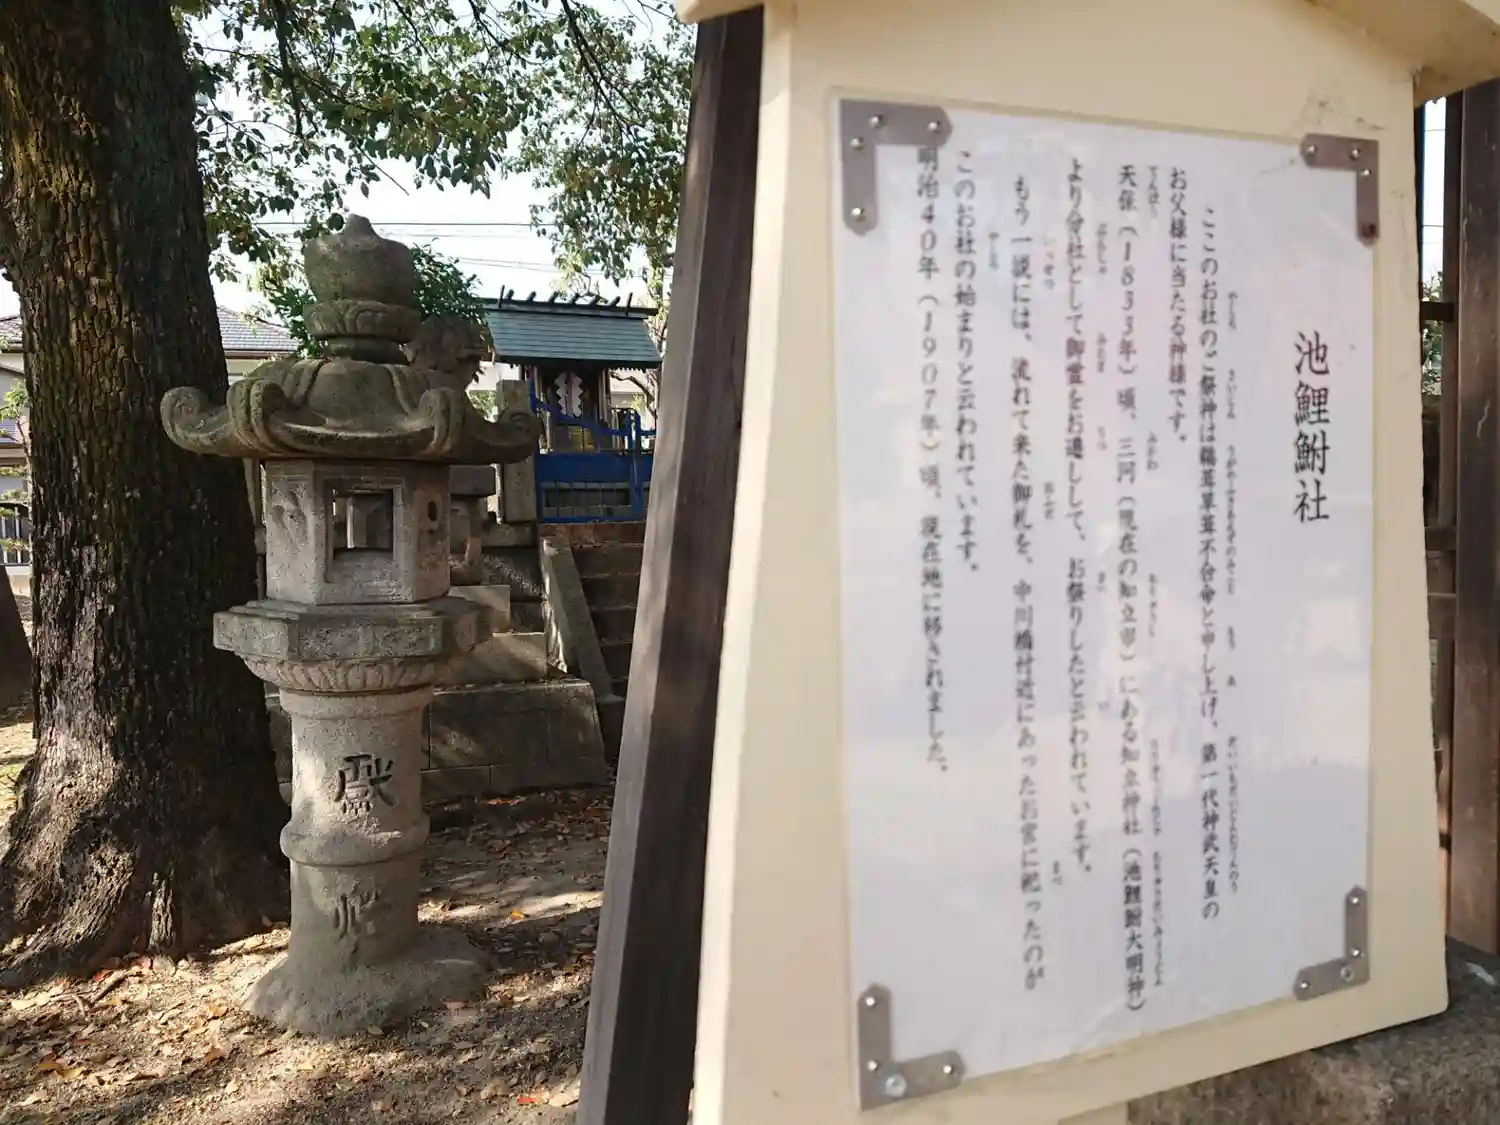 池鯉鮒社
ここのお社のご祭神は鵜茸草茸不合命と申し上げ、第一代神武天皇の
お父様に当たる神様です。
天保(1833年)頃、三河(現在の知立市)にある知立神社(池鯉鮒大明神)
より分社として御霊をお遷しして、お祭りしたと云われています。
もう一説には、流れて来た御札を、中川橋付近にあったお宮に祀ったのが
このお社の始まりと云われています。
明治40年(1907年)頃、現在地に移されました。
献